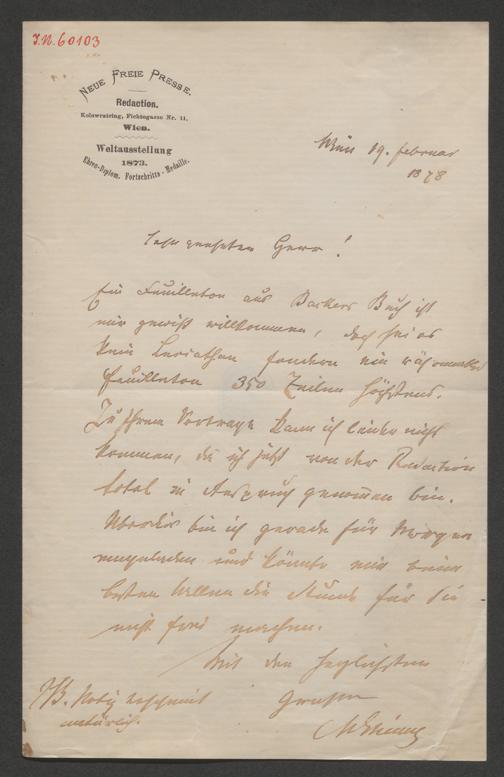 I.N. 60103
NEUE FREIE PRESSE.
Redaction.
Kolowratring, Fichtegasse Nr. 11,
Wien.
Weltausstellung
1873.
Ehren-Diplom. Fortschritts-Medaille.
Wien 19. Februar
1878
Sehr geehrter Herr!
Ein Feuilleton aus Barkers Buch ist
mir gewiß willkommen, doch sei es
kein Leviathan sondern ein
Feuilleton 350 Zeilen höchstens.
Zu Ihrem Vortrage kann ich leider nicht
kommen, da ich jetzt von der Redaction
total in Anspruch genommen bin.
Überdies bin ich gerade für Morgen
eingeladen und könnte mir beim
besten Willen die Stunde für Sie
nicht frei machen.
Mit den herzlichsten
Grüßen
NB. Notiz erscheint
natürlich.